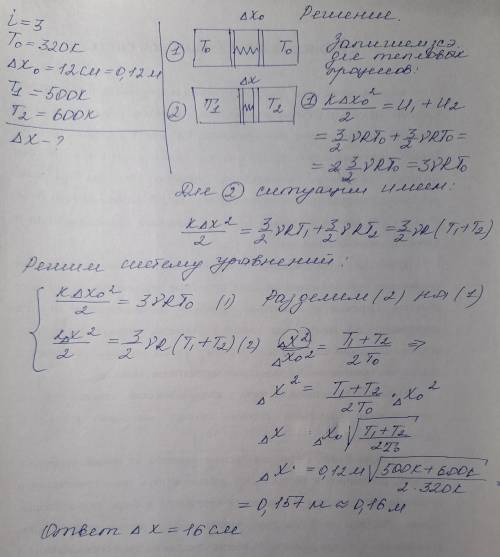 i=3
T₀=320К
Δx₀=12см=0,12м
T₁=500К
T₂=600К
Δx-?
Решение.
① T₀ T₀ Δx₀
② T₁ T₂ Δx
Запишем зсэ
для тепловых
процесов:
① kΔx₀²/2 = U₁ + U₂
= 3/2 νRT₀ + 3/2 νRT₀ =
= 2 3/2 νRT₀ = 3νRT₀
Для ② ситуации имеем:
kΔx²/2 = 3/2 νRT₁ + 3/2 νRT₂ = 3/2 νR(T₁+T₂)
Решим систему уравнений:
{ kΔx₀²/2 = 3νRT₀ (1) Разделим (2) на (1)
kΔx²/2 = 3/2 νR(T₁+T₂) (2) Δx²/Δx₀² = (T₁+T₂)/2T₀ ⇒
Δx² = (T₁+T₂)/2T₀ · Δx₀²
Δx Δx₀ √((T₁+T₂)/2T₀)
Δx = 0,12м √((500К+600К)/(2·320К))
= 0,157м ≈ 0,16м
Ответ Δx = 16см